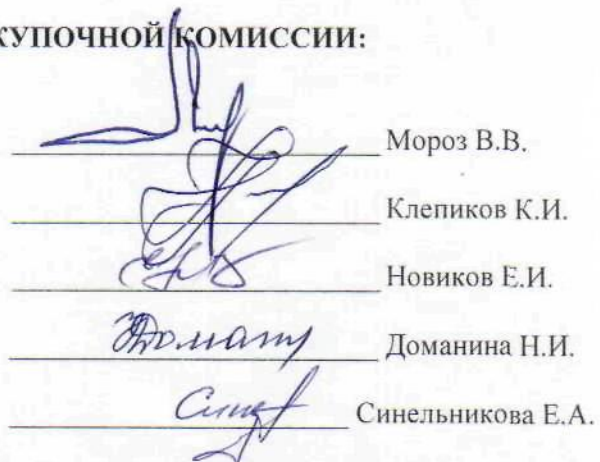 КУПОЧНОЙ КОМИССИИ:
Мороз В.В.
Клепиков К.И.
Новиков Е.И.
Доманина Н.И.
Синельникова Е.А.